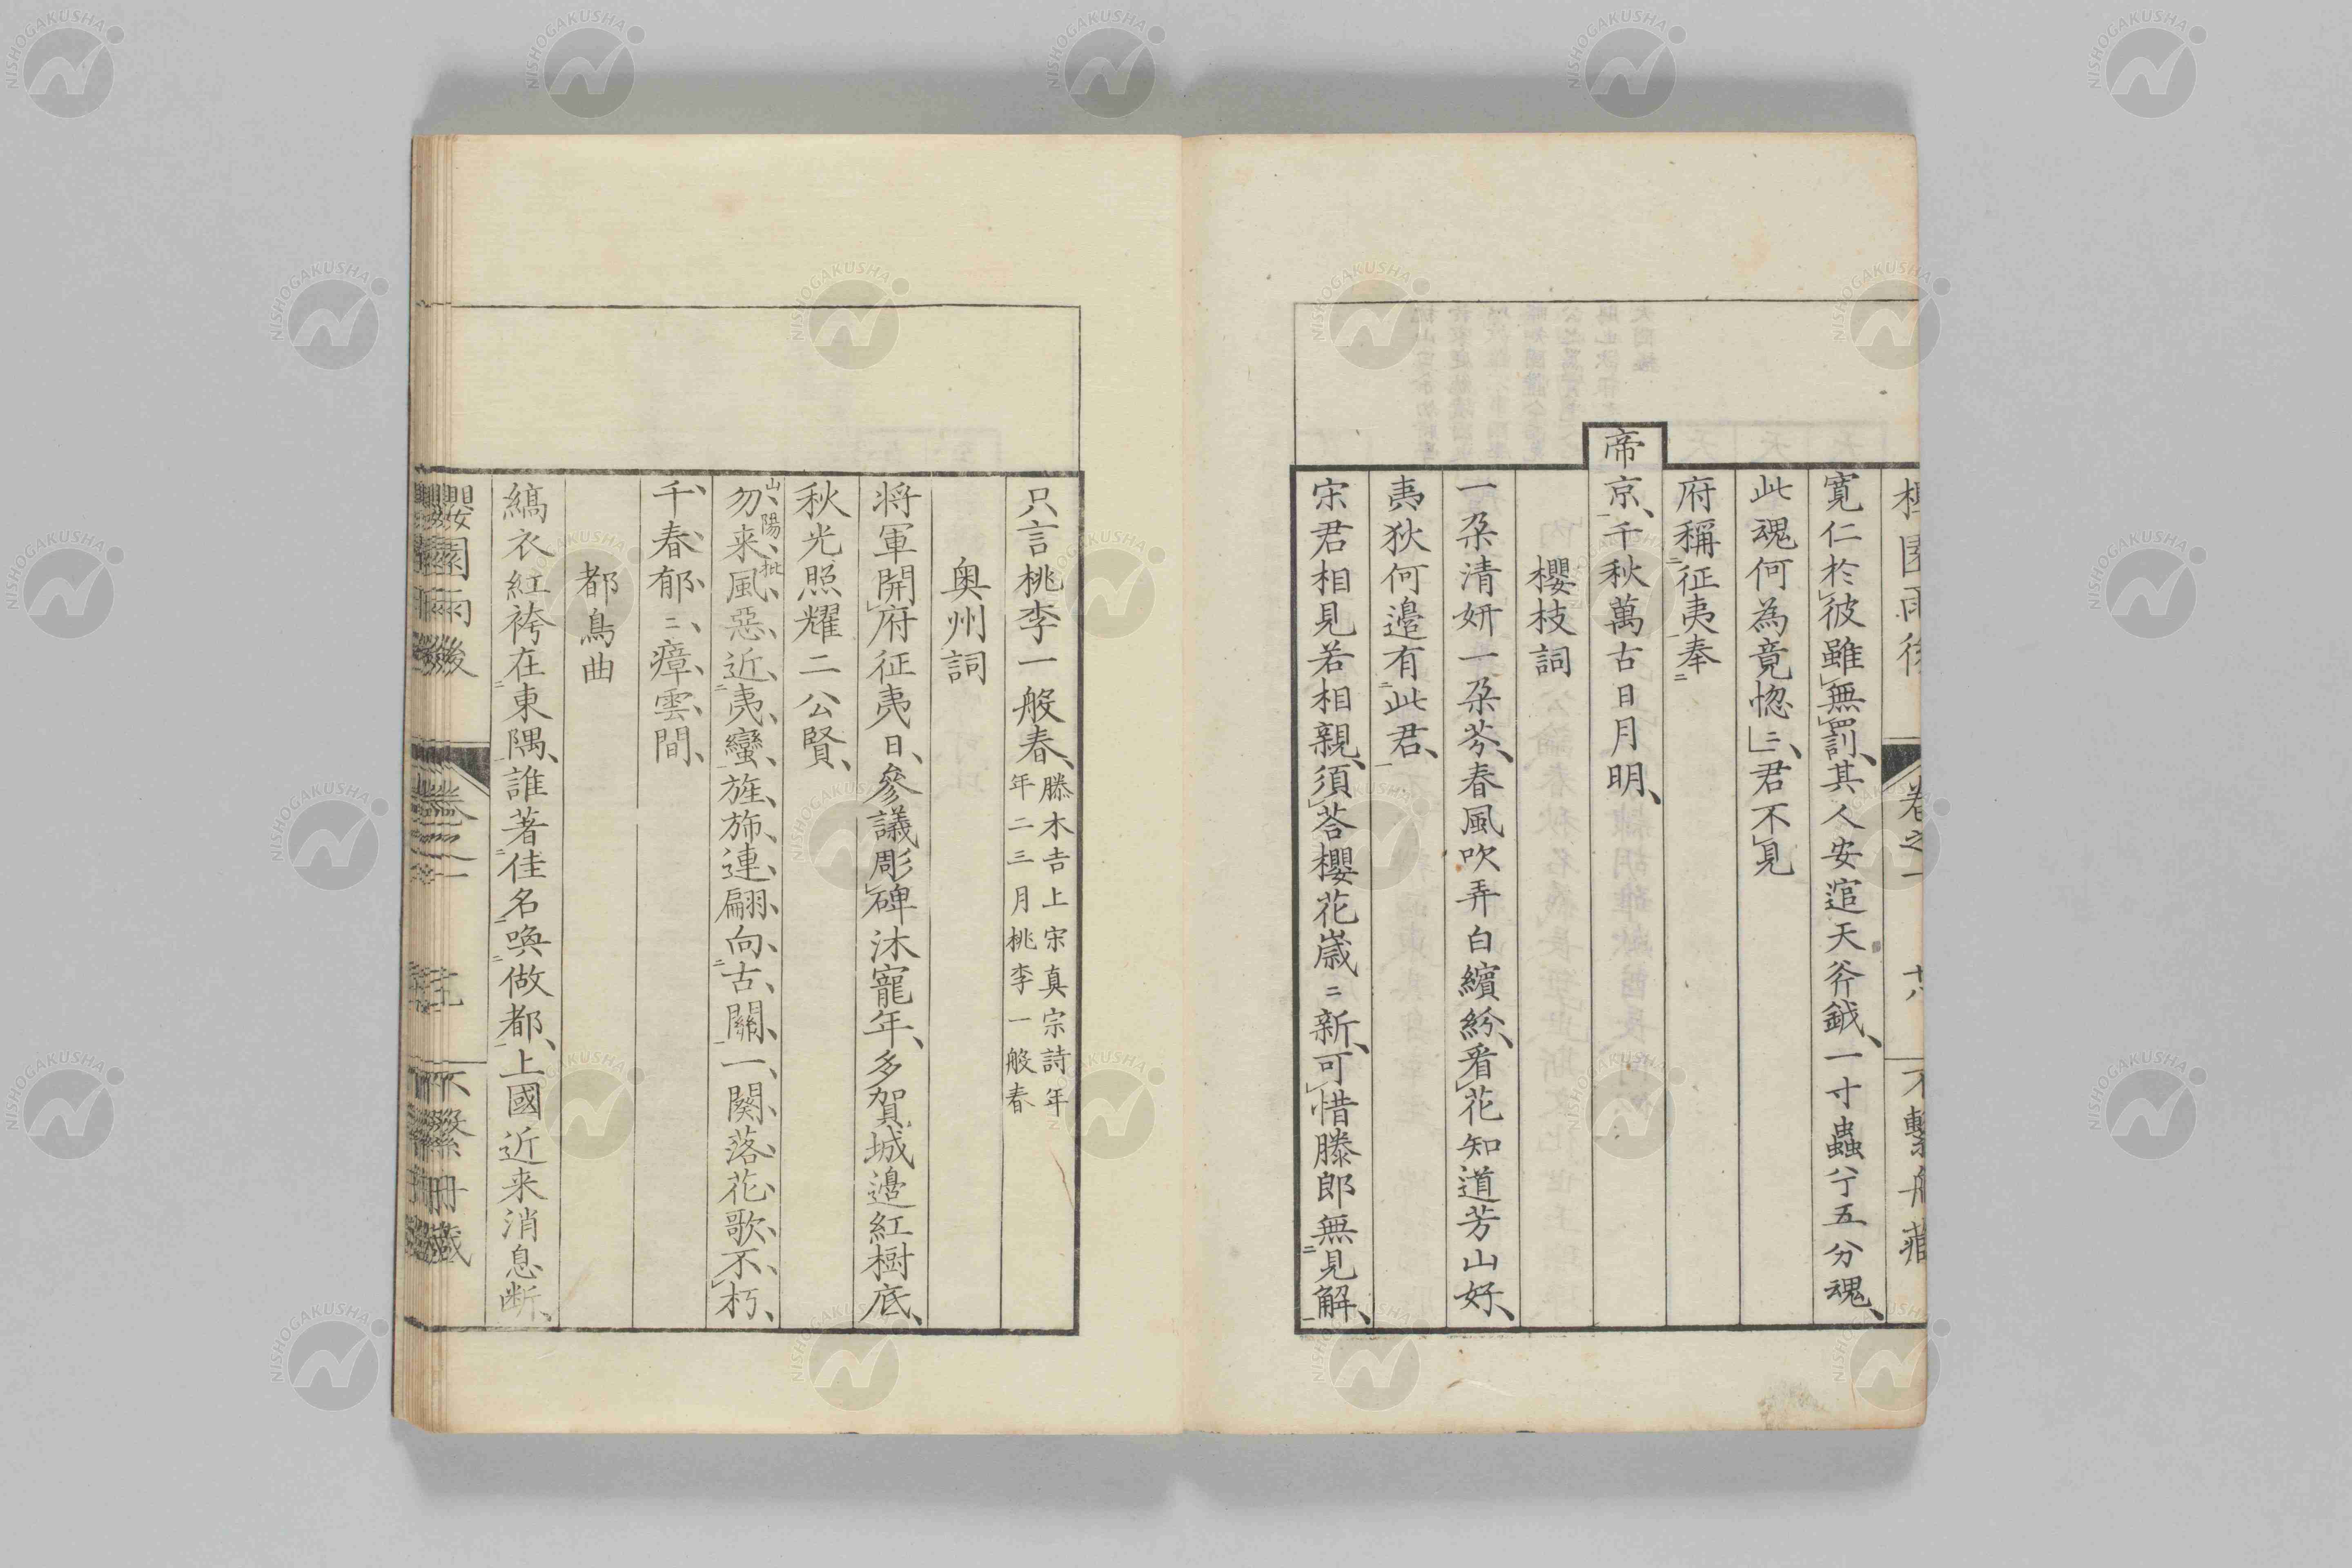 櫻園雨後 卷之一 六 不繫舟藏
寬仁於彼雖無罰其人安逭天斧鉞一寸蟲亏五分魂
此魂何為竟惚〻君不見
府稱征夷奉
帝京千秋萬古日月明
櫻枝詞
一朶清妍一朶芬春風吹弄白繽紛看花知道芳山好
夷狄何邉有此君
宋君相見若相親須荅櫻花嵗〻新可惜滕郎無見解
只言桃李一般春滕木吉上宋真宗詩年
年二三月桃李一般春
奥州詞
将軍開府征夷日參議彫碑沐寵年多賀城邉紅樹底
秋光照耀二公賢
山陽批
勿来風惡近夷蠻旌斾連翩向古關一闋落花歌不朽
千春郁〻瘴雲間
都鳥曲
縞衣紅袴在東隅誰著佳名喚做都上國近来消息断
櫻園雨後 卷之一 七 不繫舟藏
NISHOGAKUSHA